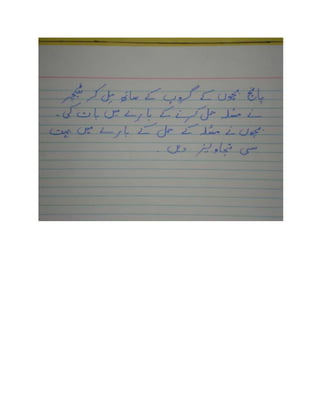 پانچ بچوں کے گروپ کے ساتھ مل کر ٹیچر
نے مسئلہ حل کرنے کے بارے میں بات کی۔
بچوں نے مسئلہ کے حل کے بارے میں بہت
سی تجاویز دیں۔